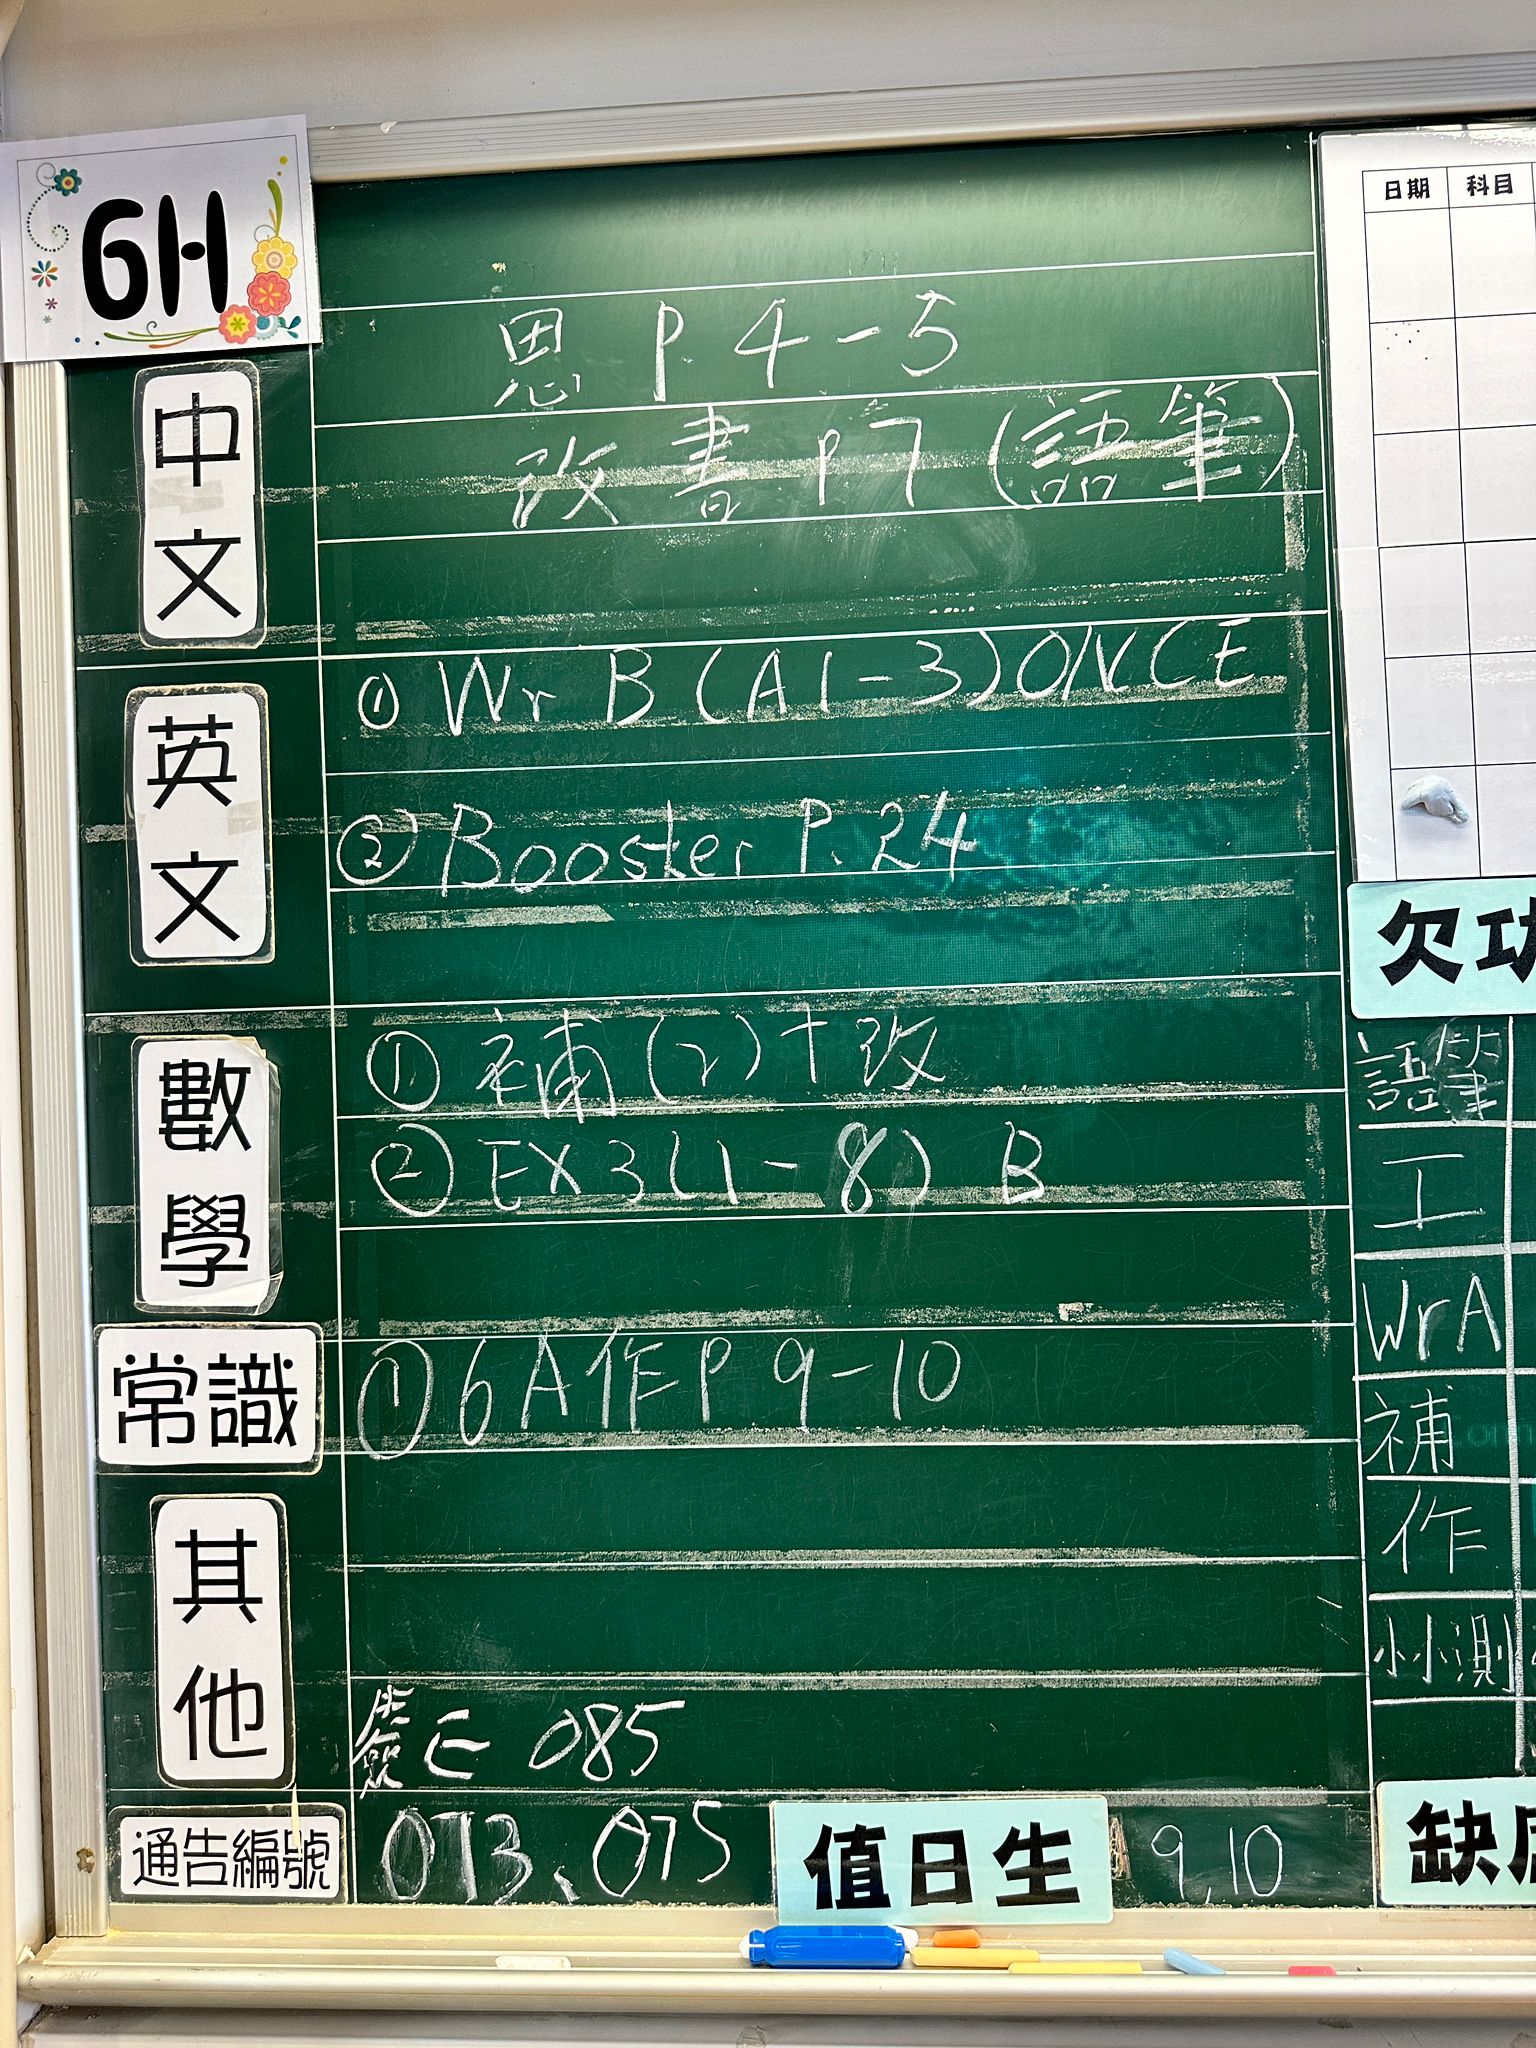 6H
中文
思 P.4-5
改書 P7 (語筆)
英文
① Wr B (A1-3) ONCE
② Booster P.24
數學
① 補(2)+改
② EX3(1-8) B
常識
① 6A作P.9-10
其他
簽E 085
通告編號
073、075
值日生
9,10
日期 科目
欠功
語筆
工
WrA
補
作
小小測
缺